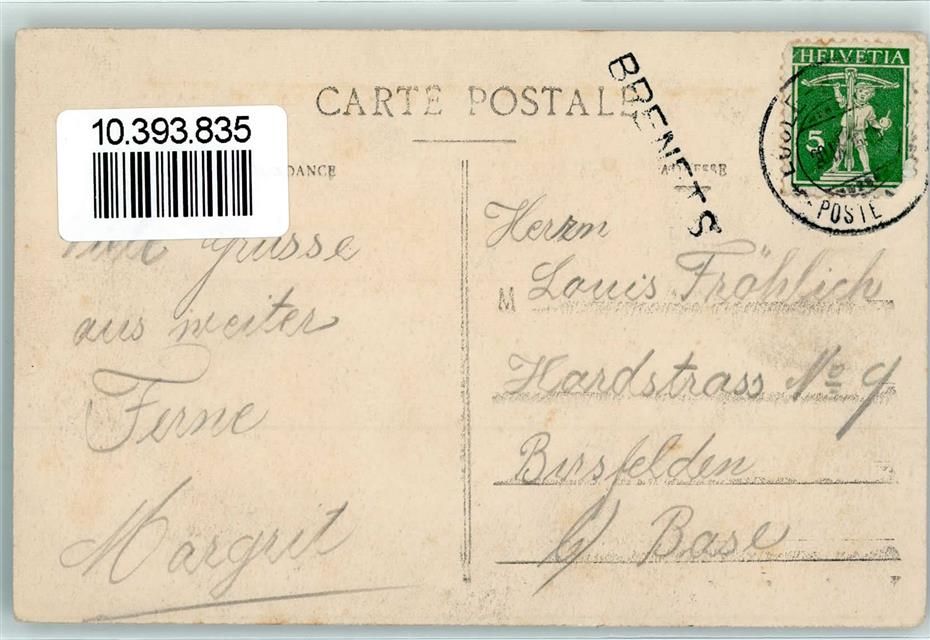 CARTE POSTALE
10.393.835
DANCE
ADRESSE
BRENETS
HELVETIA
5
POSTE
Grüsse
aus weiter
Ferne
Margrit
Herrn
M
Louis Fröhlich
Hardstrass No 9
Birsfelden
b/ Basel